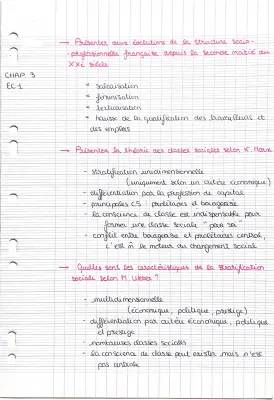 → Présenter deux évolutions de la structure socio-
-professionnelle française depuis la seconde moitié du
XXè siècle
CHAP 3
EC1
* salarisation
* féminisation
* tertiarisation
* hausse de la qualification des travailleurs et
des emplois
→ Présenter la théorie des classes sociales selon K. Marx
- stratification unidimensionnelle
(uniquement selon un critère économique)
- différentiation par la possession du capital
- principales CS : prolétaires et bourgeoisie
- la conscience de classe est indispensable pour
former une classe sociale "pour soi"
- conflit entre bourgeoisie et prolétaires central,
c'est m̂ le moteur du changement social
→ Quelles sont les caractéristiques de la stratification
sociale selon M. Weber ?
- multidimensionnelle
(économique, politique, prestige)
- différentiation par critère économique, politique
et prestige
- nombreuses classes sociales
- la conscience de classe peut exister mais n'est
pas centrale